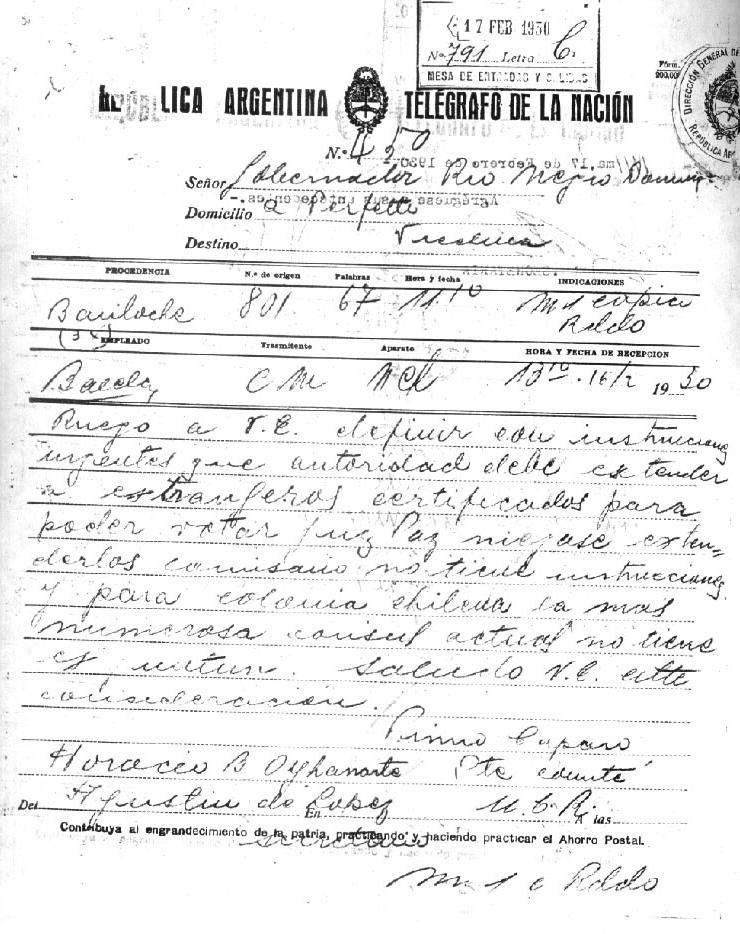 17 FEB 1930
Nº 791 Letra C
MESA DE ENTRADAS Y SALIDAS
Fórm.
DIRECCIÓN GENERAL DE
REPÚBLICA AR
REPÚBLICA ARGENTINA TELÉGRAFO DE LA NACIÓN
N.º 450
Señor Gobernador Rio Negro
Domicilio a Perfetti
Destino Viedma
PROCEDENCIA N.º de origen Palabras Hora y fecha INDICACIONES
Bariloche 801 67 11 10 m 1 copia
Rdo
EMPLEADO Trasmitente Aparato HORA Y FECHA DE RECEPCION
C M 13 10 . 16/2 1930
Ruego a V.E. definir con instrucciones
urgentes que autoridad debe extender
a extrangeros certificados para
poder votar juez Paz niegase exten=
derlos comisario no tiene instrucciones
y para colonia chilena la mas
numerosa consul actual no tiene
saludo V.E. alta
consideracion.
Primo Capraro
Horacio B Oyhanarte Pte comité
Del Agustin de Lopez En U.C.R. A las
Contribuya al engrandecimiento de la patria, practicando y haciendo practicar el Ahorro Postal.
secretario
m 1 c Rdo